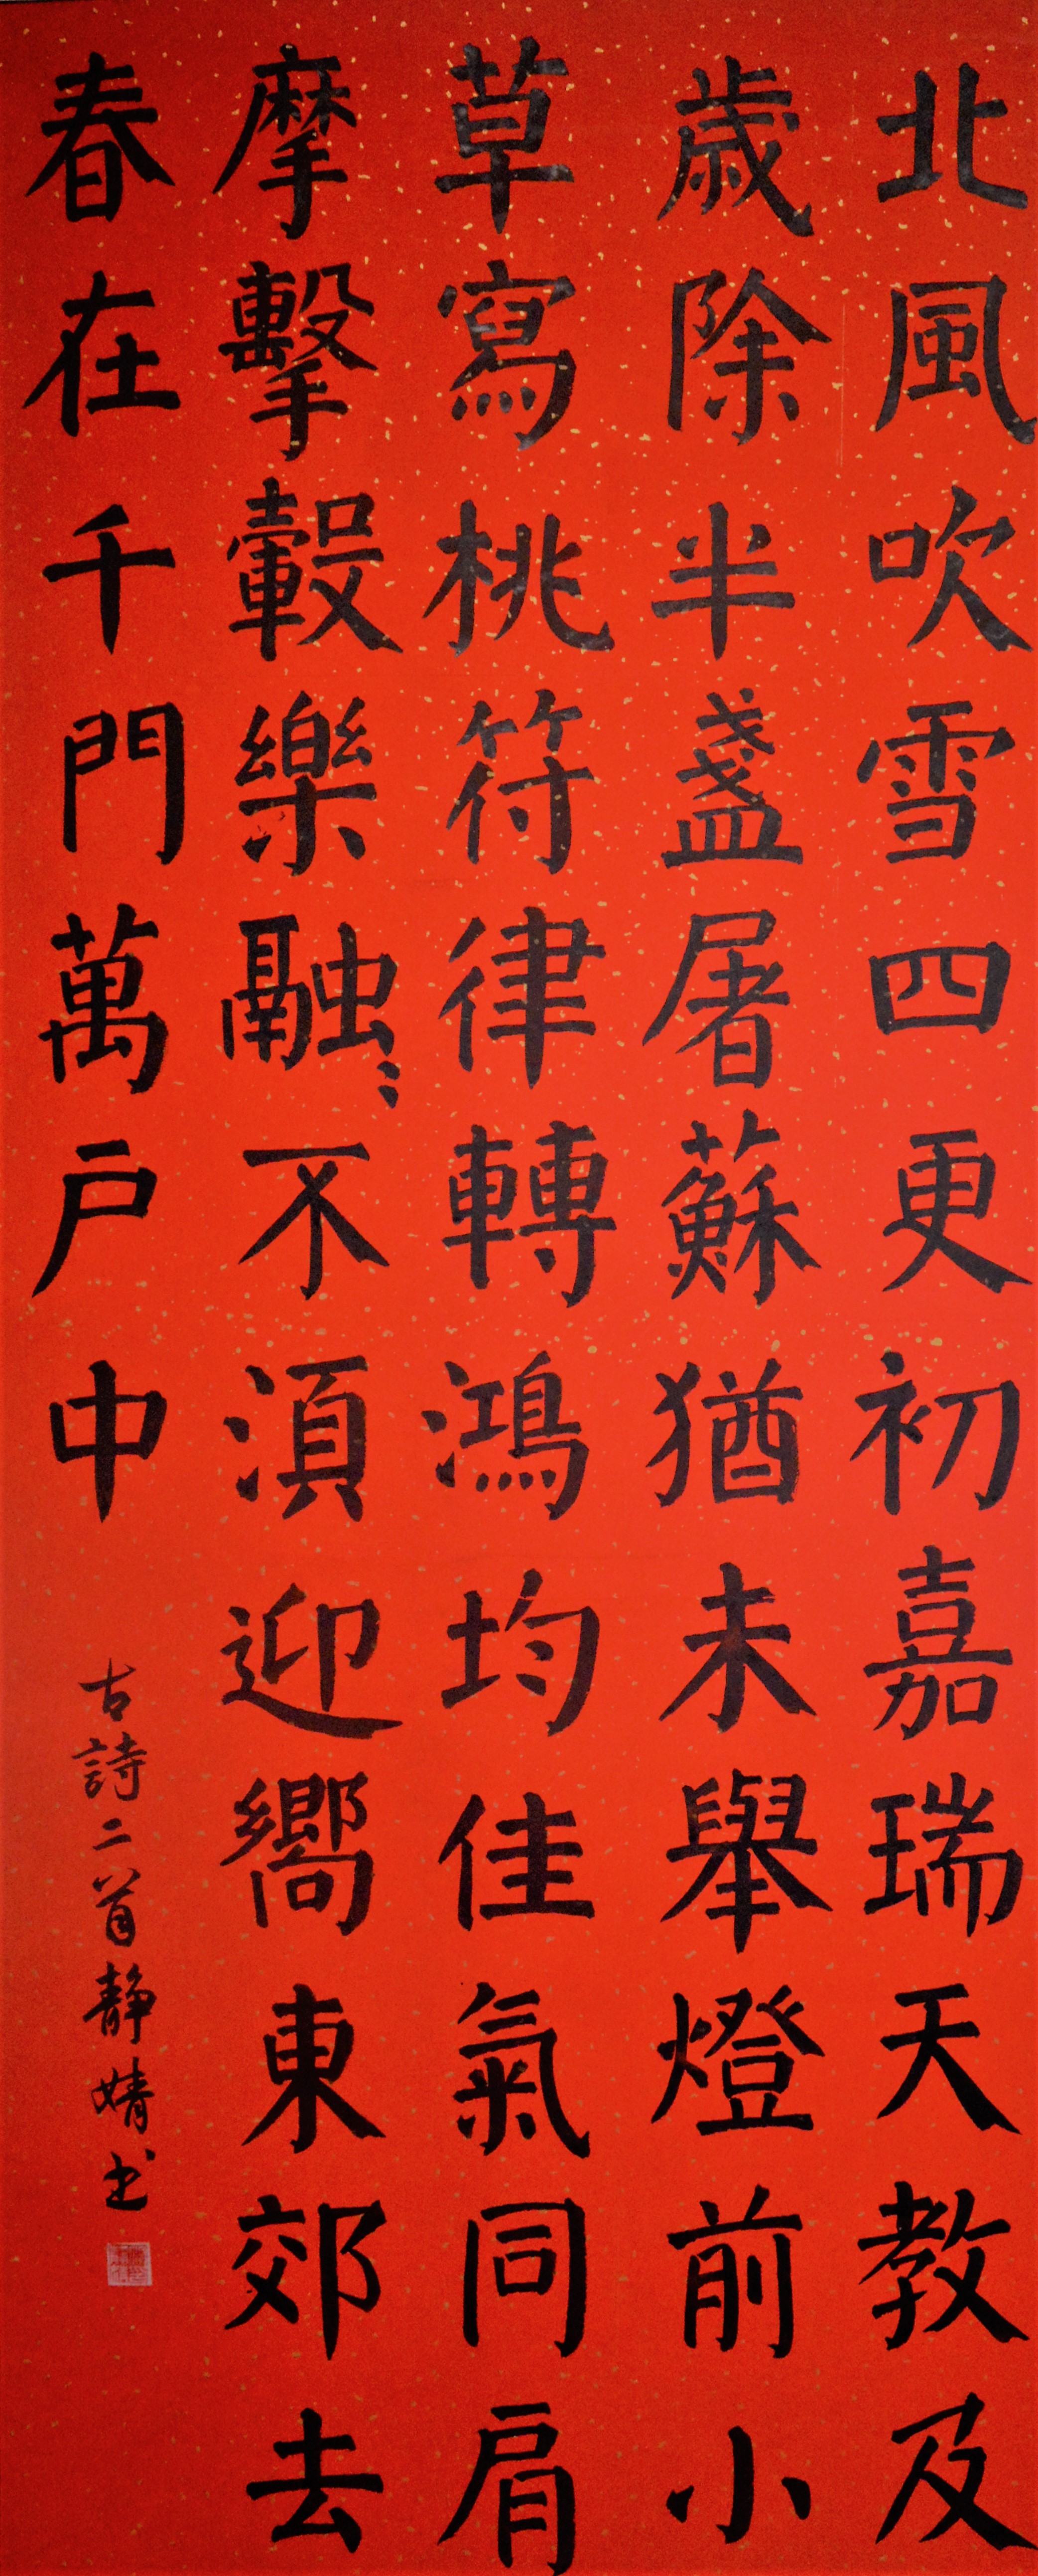 北風吹雪四更初嘉瑞天教及
歲除半盞屠蘇猶未舉燈前小
草寫桃符律轉鴻均佳氣同肩
摩擊轂樂融〻不湏迎嚮東郊去
春在千門萬户中
古詩二首静婧书